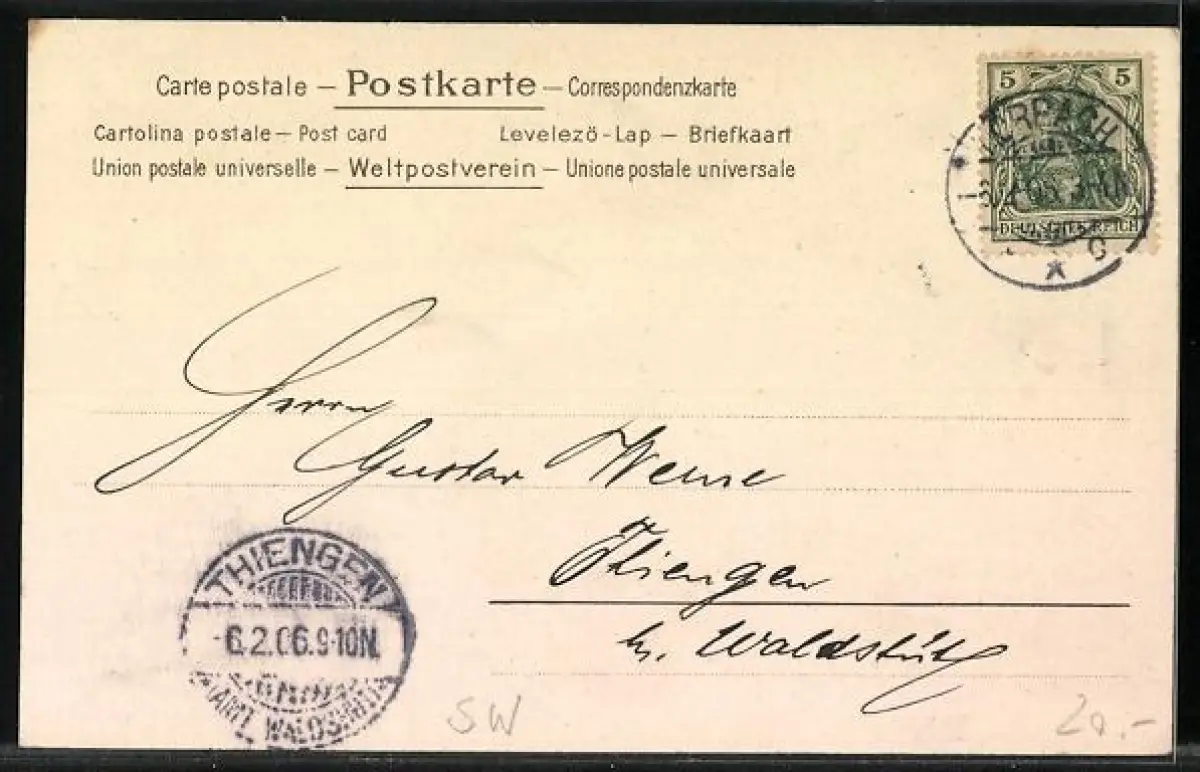 Carte postale — Postkarte — Correspondenzkarte
Cartolina postale — Post card Levelezö-Lap — Briefkaart
Union postale universelle — Weltpostverein — Unione postale universale
5 5
DEUTSCHES REICH
C
Herrn
Gustav
Thiengen
b. Waldshut
THIENGEN
-6.2.06.9-10N.
(AMT WALDSHUT)
SW
20.-